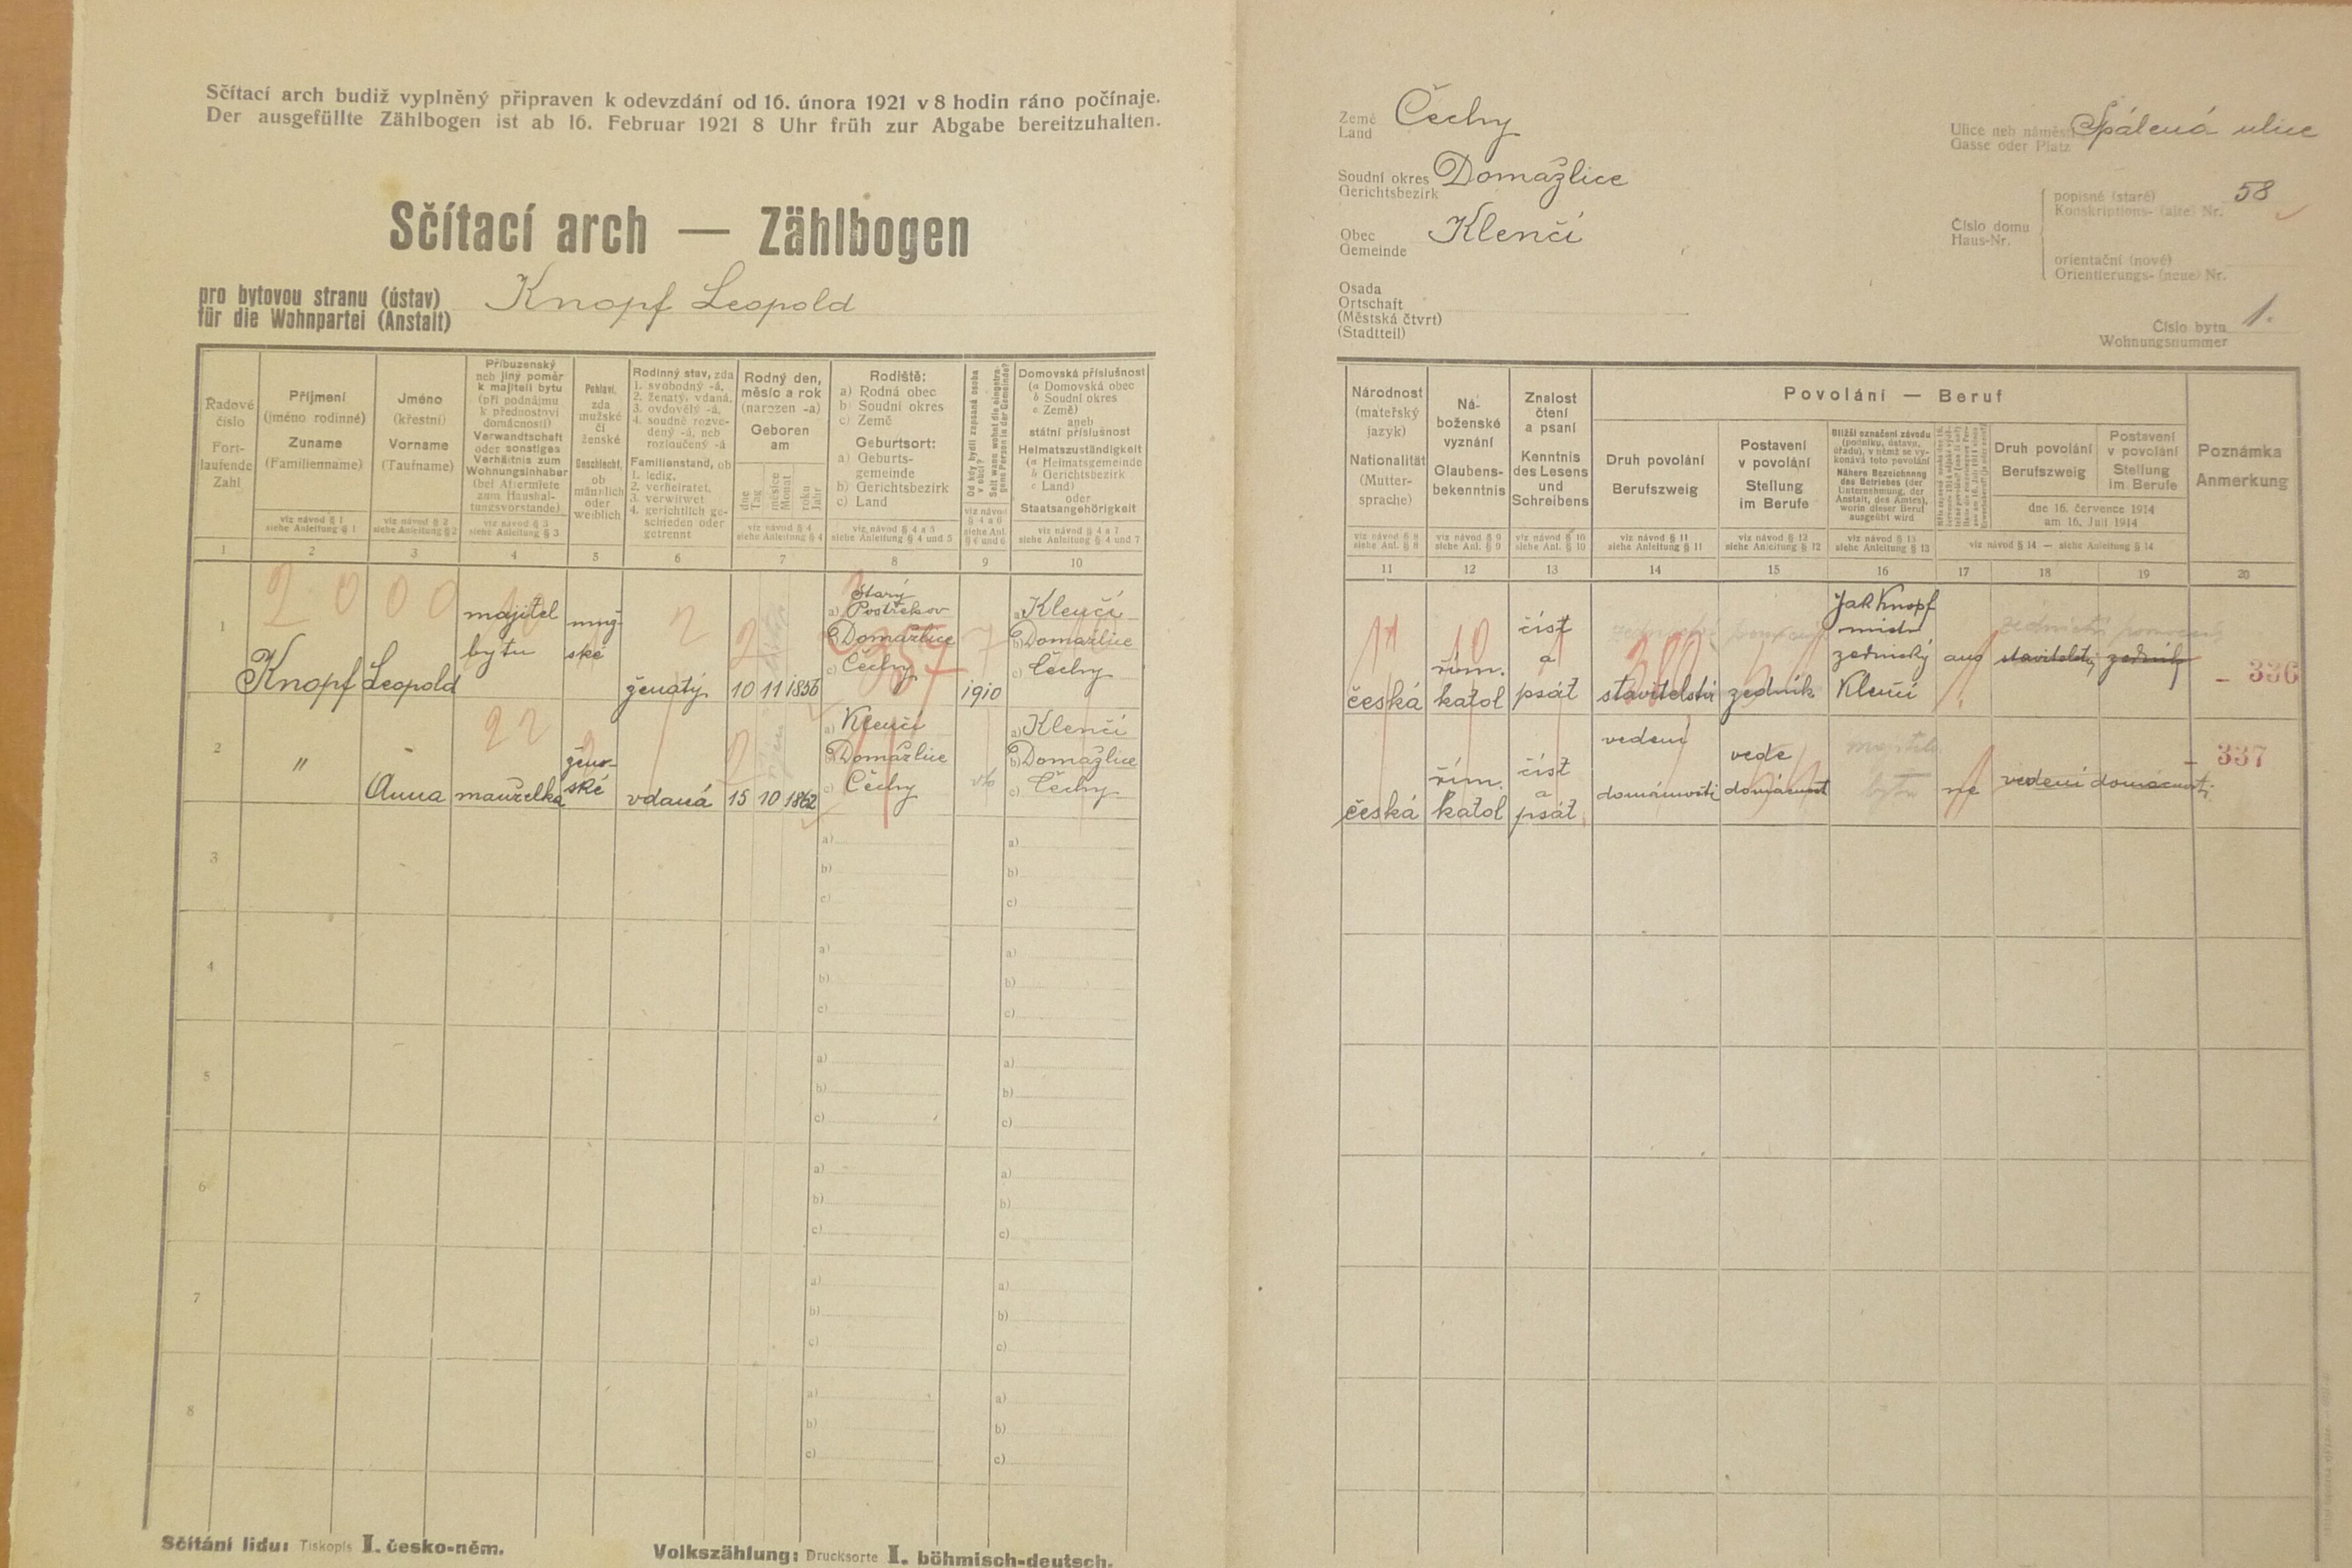 Sčítací arch budiž vyplněný připraven k odevzdání od 16. února 1921 v 8 hodin ráno počínaje.
Der ausgefüllte Zählbogen ist ab 16. Februar 1921 8 Uhr früh zur Abgabe bereitzuhalten.
Sčítací arch — Zählbogen
pro bytovou stranu (ústav)
für die Wohnpartei (Anstalt)
Knopf Leopold
Řadové
číslo
Fort-
laufende
Zahl
Příjmení
(jméno rodinné)
Zuname
(Familienname)
viz návod § 1
siehe Anleitung § 1
Jméno
(křestní)
Vorname
(Taufname)
viz návod § 2
siehe Anleitung § 2
Příbuzenský
neb jiný poměr
k majiteli bytu
(při podnájmu
k přednostovi
domácnosti)
Verwandtschaft
oder sonstiges
Verhältnis zum
Wohnungsinhaber
(bei Aftermiete
zum Haushal-
tungsvorstande)
viz návod § 3
siehe Anleitung § 3
Pohlaví,
zda
mužské
či
ženské
Geschlecht,
ob
männlich
oder
weiblich
Rodinný stav, zda
1. svobodný -á,
2. ženatý, vdaná,
3. ovdovělý -á,
4. soudně rozve-
dený -á, neb
rozloučený -á
Familienstand, ob
1. ledig,
2. verheiratet,
3. verwitwet,
4. gerichtlich ge-
schieden oder
getrennt
Rodný den,
měsíc a rok
(narozen -a)
Geboren
am
dne
Tag
měsíce
Monat
roku
Jahr
viz návod § 4
siehe Anleitung § 4
Rodiště:
a) Rodná obec
b) Soudní okres
c) Země
Geburtsort:
a) Geburts-
gemeinde
b) Gerichtsbezirk
c) Land
viz návod § 4 a 5
siehe Anleitung § 4 und 5
Od kdy bydlí zapsaná osoba
v obci?
Seit wann wohnt die eingetra-
gene Person in der Gemeinde?
viz návod
§ 4 a 6
siehe Anl.
§ 4 und 6
Domovská příslušnost
(a Domovská obec
b Soudní okres
c Země)
aneb
státní příslušnost
Heimatszuständigkeit
(a Heimatsgemeinde
b Gerichtsbezirk
c Land)
oder
Staatsangehörigkeit
viz návod § 4 a 7
siehe Anleitung § 4 und 7
1 2 3 4 5 6 7 8 9 10
1
2 0 0 0
Knopf
Leopold
majitel
bytu
muž-
ské
2
ženatý
2
10 11 1856
Starý
a) Postřekov
b) Domažlice
c) Čechy
7
1910
a) Klenčí
b) Domažlice
c) Čechy
2
"
Anna
22
manželka
žens-
ské
vdaná
2
15 10 1862
a) Klenčí
b) Domažlice
c) Čechy
a) Klenčí
b) Domažlice
c) Čechy
3
a) a)
b) b)
c) c)
4
a) a)
b) b)
c) c)
5
a) a)
b) b)
c) c)
6
a) a)
b) b)
c) c)
7
a) a)
b) b)
c) c)
8
a) a)
b) b)
c) c)
Sčítání lidu: Tiskopis I. česko-něm.
Volkszählung: Drucksorte I. böhmisch-deutsch.
Země
Land
Čechy
Soudní okres
Gerichtsbezirk
Domažlice
Obec
Gemeinde
Klenčí
Osada
Ortschaft
(Městská čtvrt)
(Stadtteil)
Ulice neb náměstí
Gasse oder Platz
Spálená ulice
Číslo domu
Haus-Nr.
popisné (staré)
Konskriptions- (alte) Nr.
58
orientační (nové)
Orientierungs- (neue) Nr.
Číslo bytu
Wohnungsnummer
1.
Národnost
(mateřský
jazyk)
Nationalität
(Mutter-
sprache)
viz návod § 8
siehe Anl. § 8
Ná-
boženské
vyznání
Glaubens-
bekenntnis
viz návod § 9
siehe Anl. § 9
Znalost
čtení
a psaní
Kenntnis
des Lesens
und
Schreibens
viz návod § 10
siehe Anl. § 10
Povolání — Beruf
Druh povolání
Berufszweig
viz návod § 11
siehe Anleitung § 11
Postavení
v povolání
Stellung
im Berufe
viz návod § 12
siehe Anleitung § 12
Bližší označení závodu
(podniku, ústavu,
úřadu), v němž se vy-
konává toto povolání
Nähere Bezeichnung
des Betriebes (der
Unternehmung, der
Anstalt, des Amtes),
worin dieser Beruf
ausgeübt wird
viz návod § 13
siehe Anleitung § 13
Druh povolání
Berufszweig
Postavení
v povolání
Stellung
im Berufe
dne 16. července 1914
am 16. Juli 1914
viz návod § 14 — siehe Anleitung § 14
Poznámka
Anmerkung
11 12 13 14 15 16 17 18 19 20
česká
10
řím.
katol
číst
a
psát
stavitelství
zedník
Jak Knopf
mistr
zednický
Klenčí
ano
stavitelství
zedník
336
česká
řím.
katol
číst
a
psát
vedení
domácnosti
vede
domácnost
ne
vedení domácnosti
337